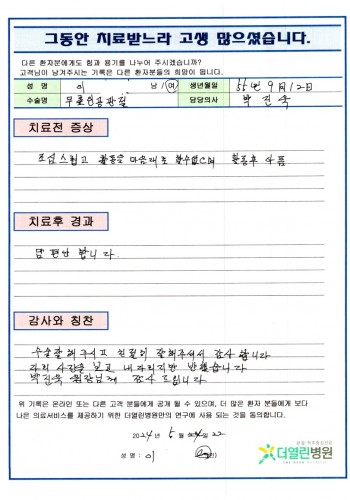 그동안 치료받느라 고생 많으셨습니다.
다른 환자분에게도 힘과 용기를 나누어 주시겠습니까?
고객님이 남겨주시는 기록은 다른 환자분들의 희망이 됩니다.
성 명 이 남 / 여 생년월일 55년 9月 12日
수술명 무릎인공관절 담당의사 박진욱
치료전 증상
조심스럽고 활동을 마음대로 할수없으며 활동후 아픔
치료후 경과
맘 편안 합니다.
감사와 칭찬
수술잘해주시고 친절히 잘해주셔서 감사합니다
다리 사진을 보고 내다리지만 반했습니다
박진욱 원장님께 감사드립니다
위 기록은 온라인 또는 다른 고객 분들에게 공개 될 수 있으며, 더 많은 환자 분들에게 보다
나은 의료서비스를 제공하기 위한 더열린병원만의 연구에 사용 되는 것을 동의합니다.
2024년 5월 22
성 명 : 이
더열린병원